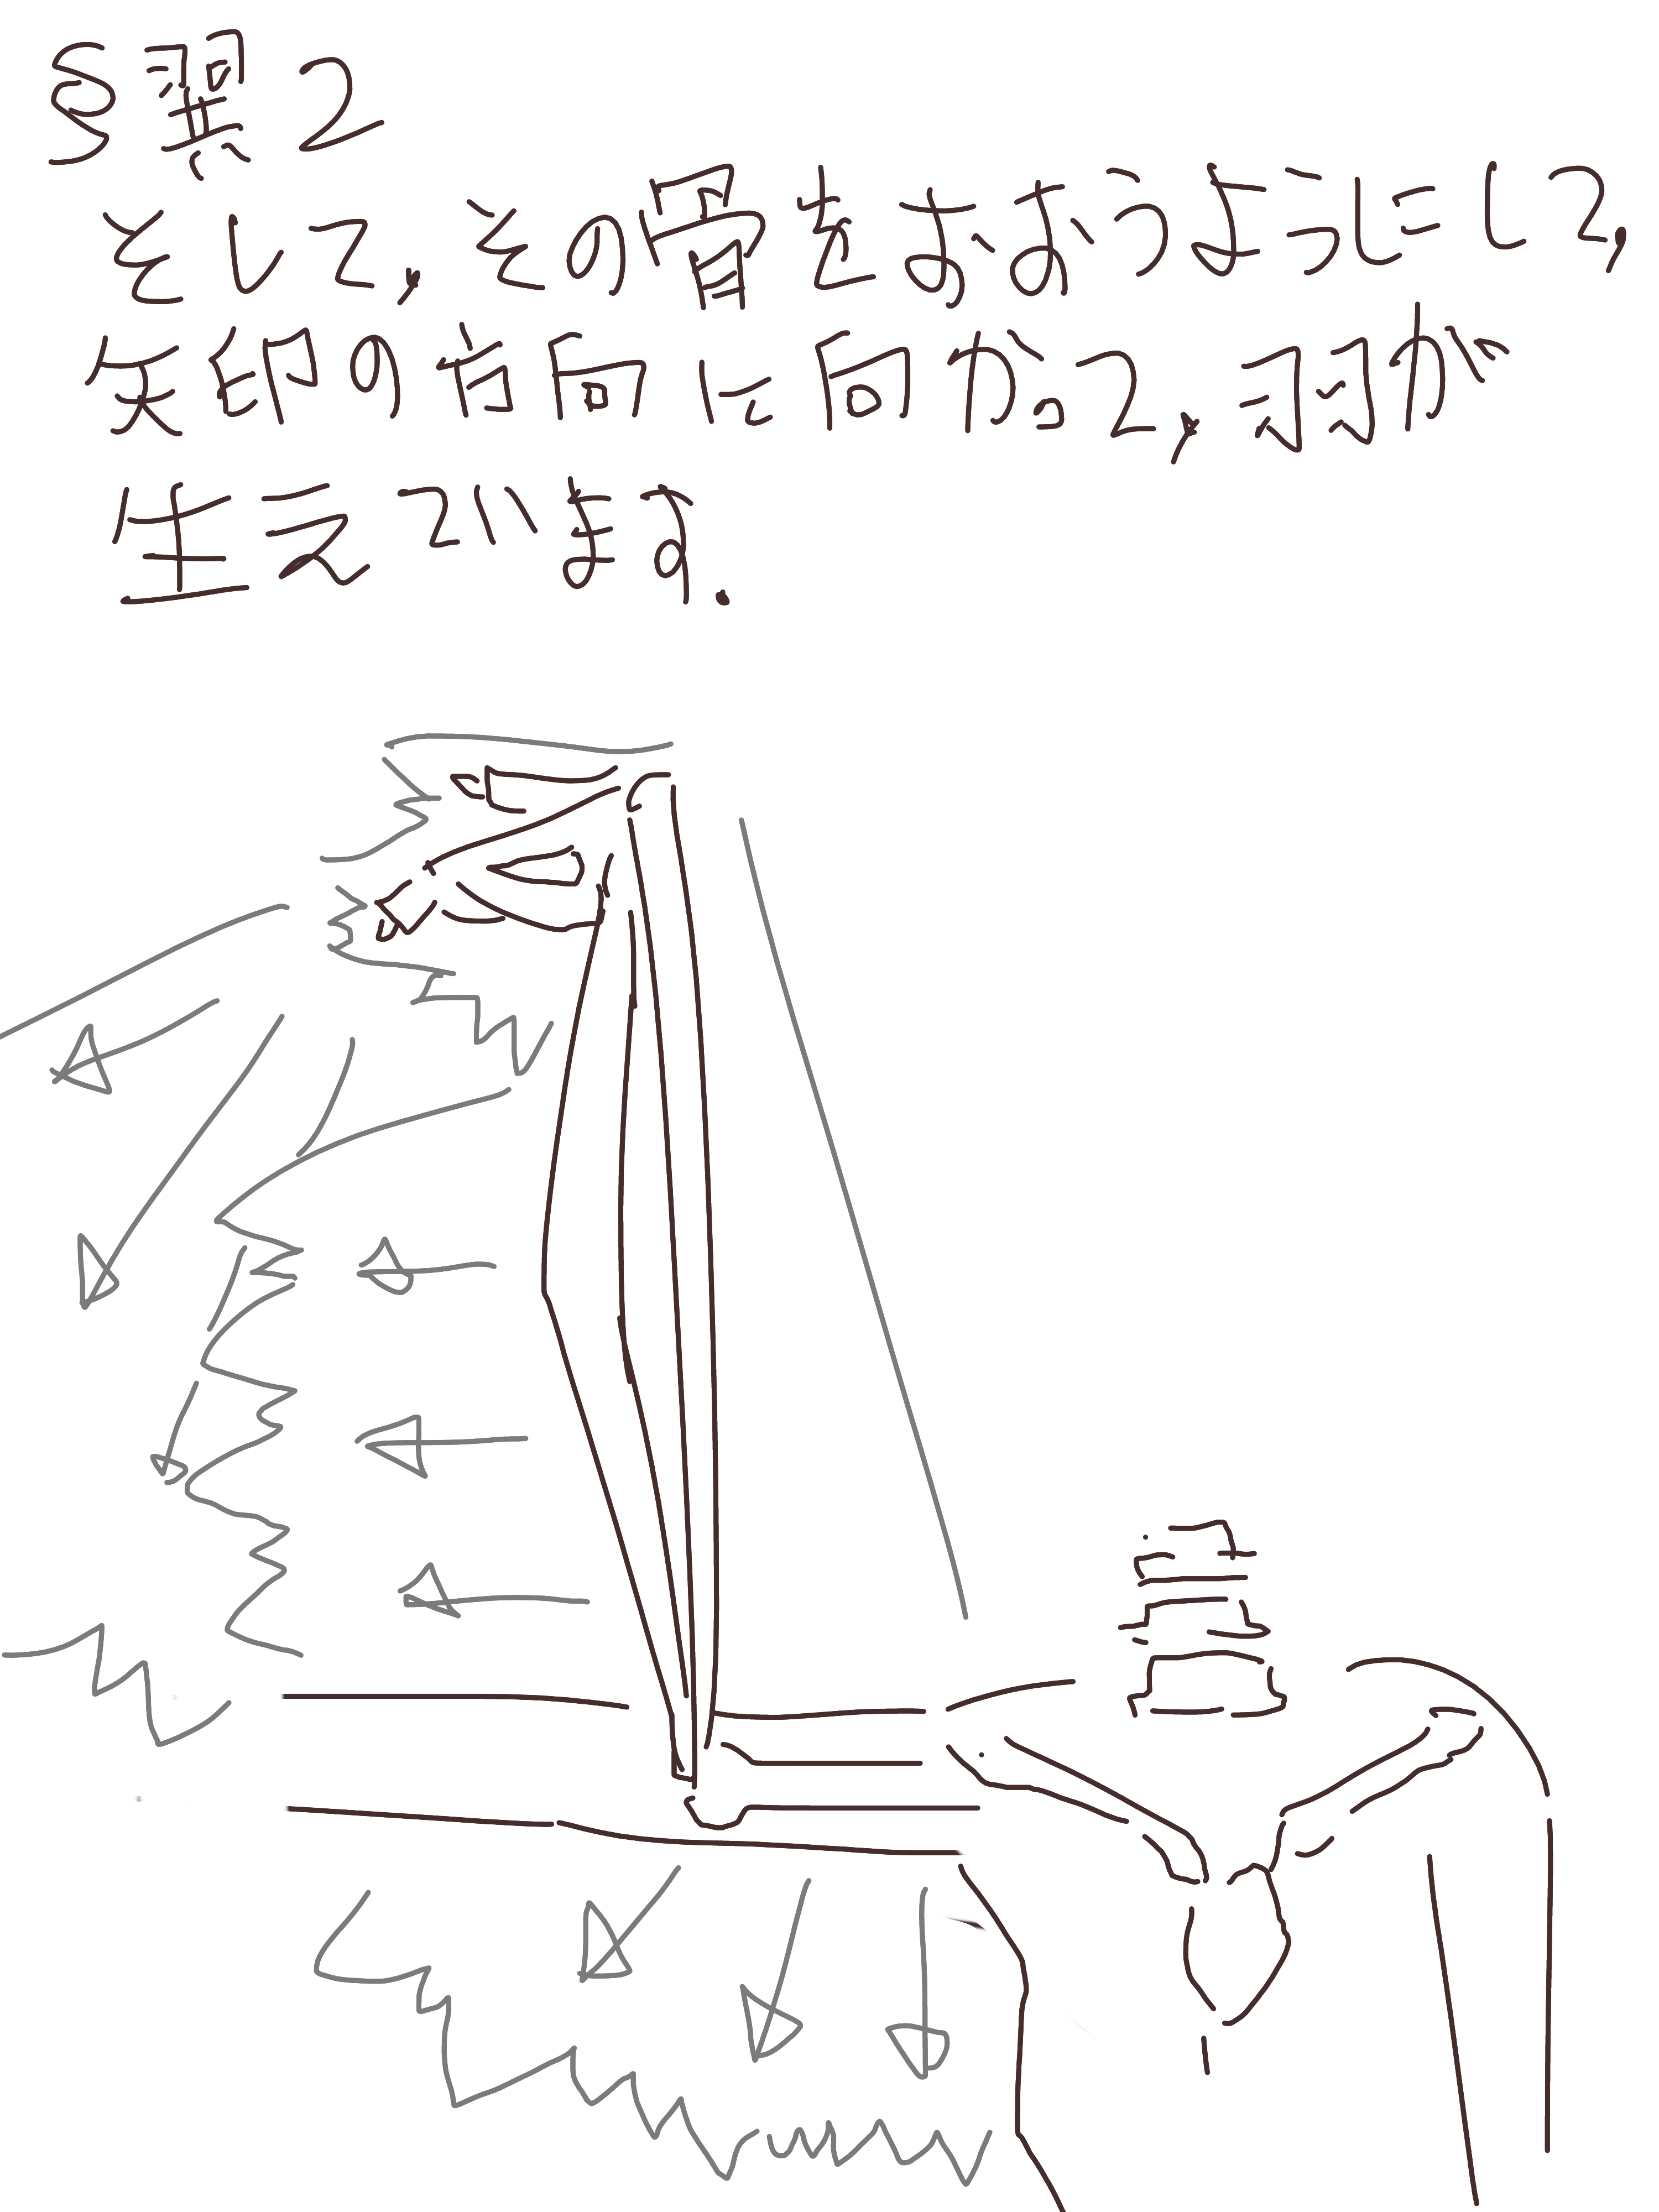 §翼2
そして,その骨をおおうようにして,
矢印の方向に向かって,羽が
生えています.